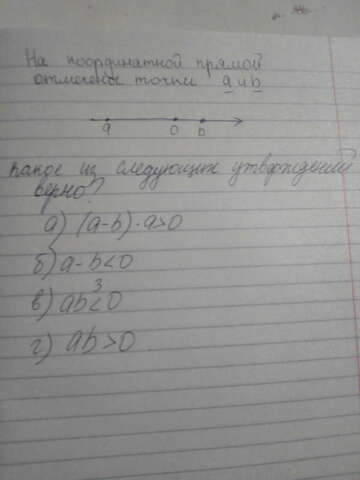 На координатной прямой
отмечены точки a и b
a 0 b
Какое из следующих утверждений
верно?
а) (a-b)·a>0
б) a-b<0
в) ab³<0
г) ab>0